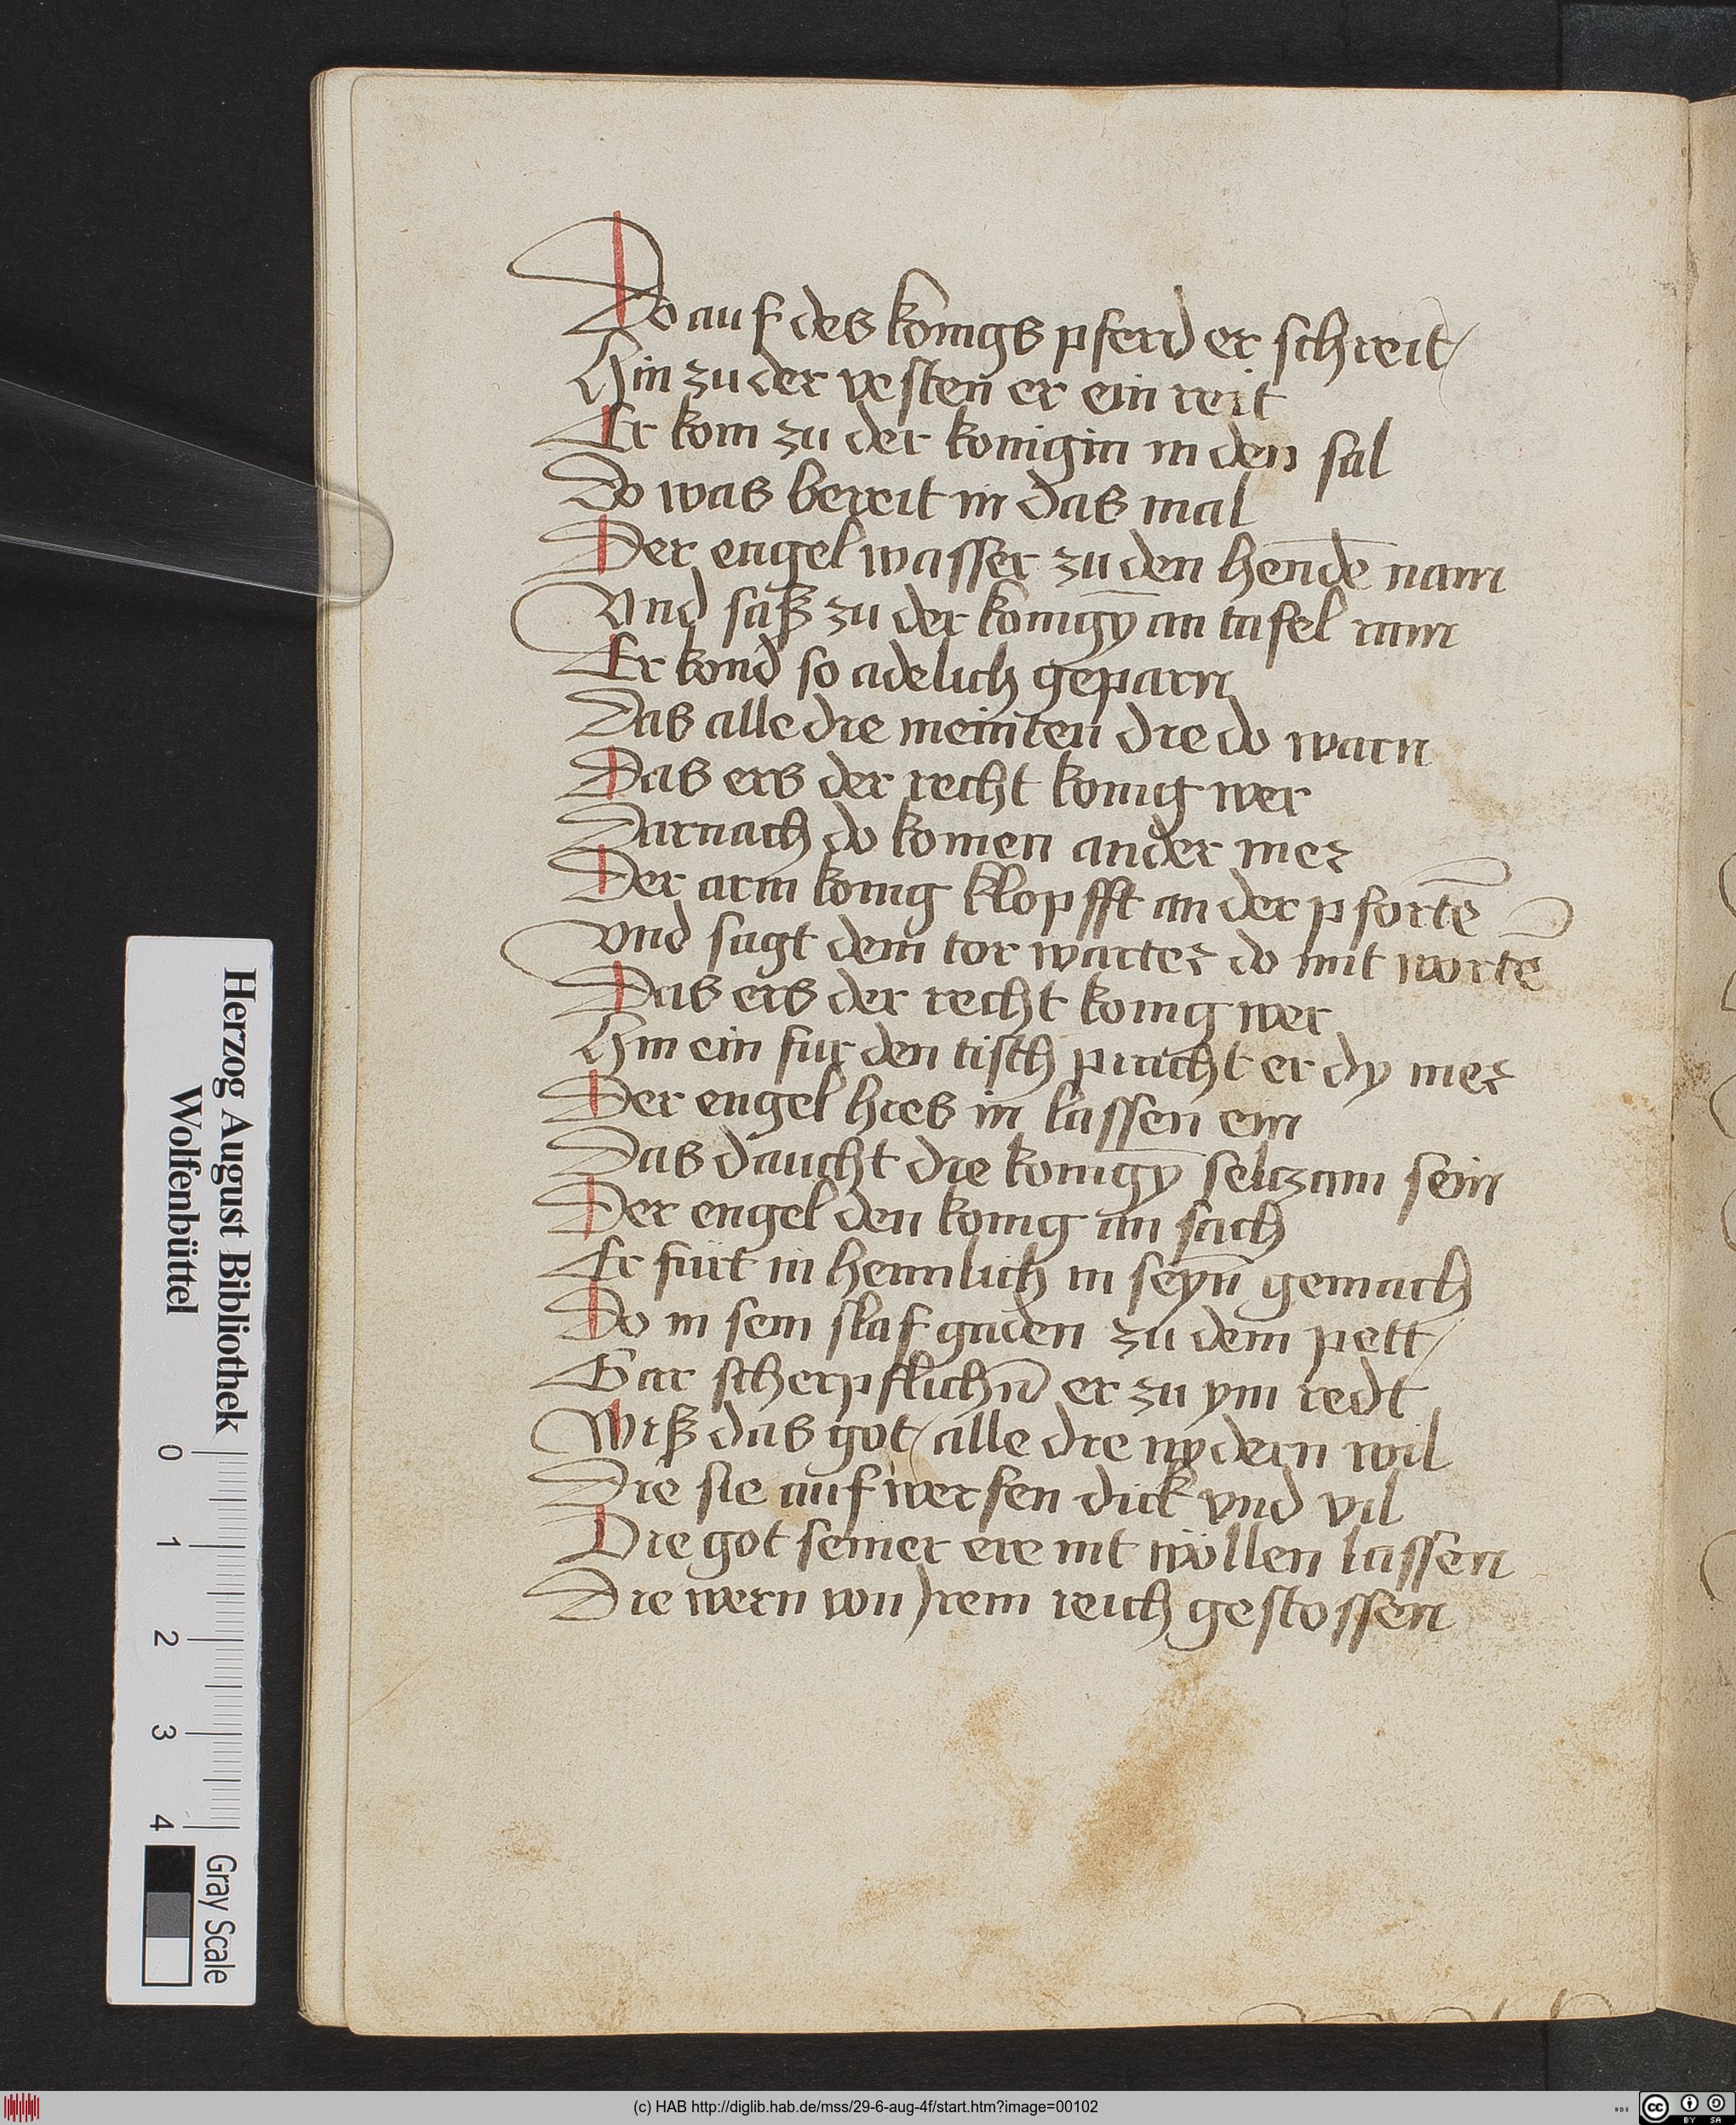 Do auf des konigs pferd er schreit/
Hin zu der vesten er ein reit
Er kom zu der konigin in den sal
Do was bereit in das mal
Der engel wasser zu den hende nam
Vnd saß zu der konigȳ an tafel ram
Er kond so adelich geparn
Das alle die meinten die do warn
Das ers der recht konig wer
Darnach do komen ander mer
Der arm konig klopfft an der pfortē
vnd sagt dem tor warter do mit wortē
Das ers der recht konig wer
Hin ein fur den tisch pracht er dy mer
Der engel hies in lassen ein
Das daucht die konigȳ selczam sein
Der engel den konig an sach
Er fürt in heimlich in seyn̄ gemach
Do in sein slaf gaden zu dem pett/
Gar scherpflichn̄ er zu ym redt
Wiß das got/ alle die nydern wil
Die sie auf werfen dick vnd vil
Die got seiner ere nit wöllen lassen
Die wern von jrem reich gestossen
Herzog August Bibliothek
Wolfenbüttel
0 1 2 3 4
Gray Scale
(c) HAB http://diglib.hab.de/mss/29-6-aug-4f/start.htm?image=00102
cc BY SA